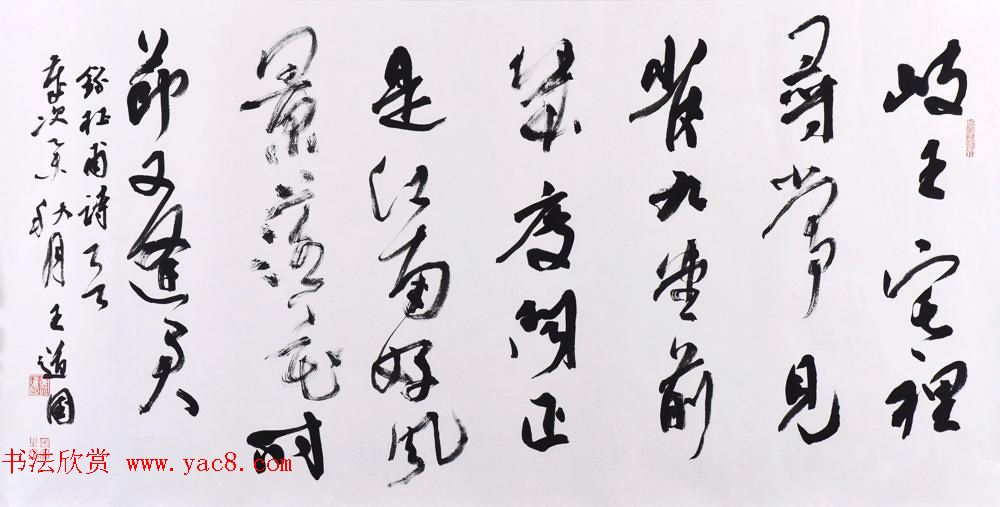 岐王宅裡
尋常見
崔九堂前
幾度聞正
是江南好風
景落花時
節又逢君
錄杜甫詩
歲次 月王道國
书法欣赏 www.yac8.com